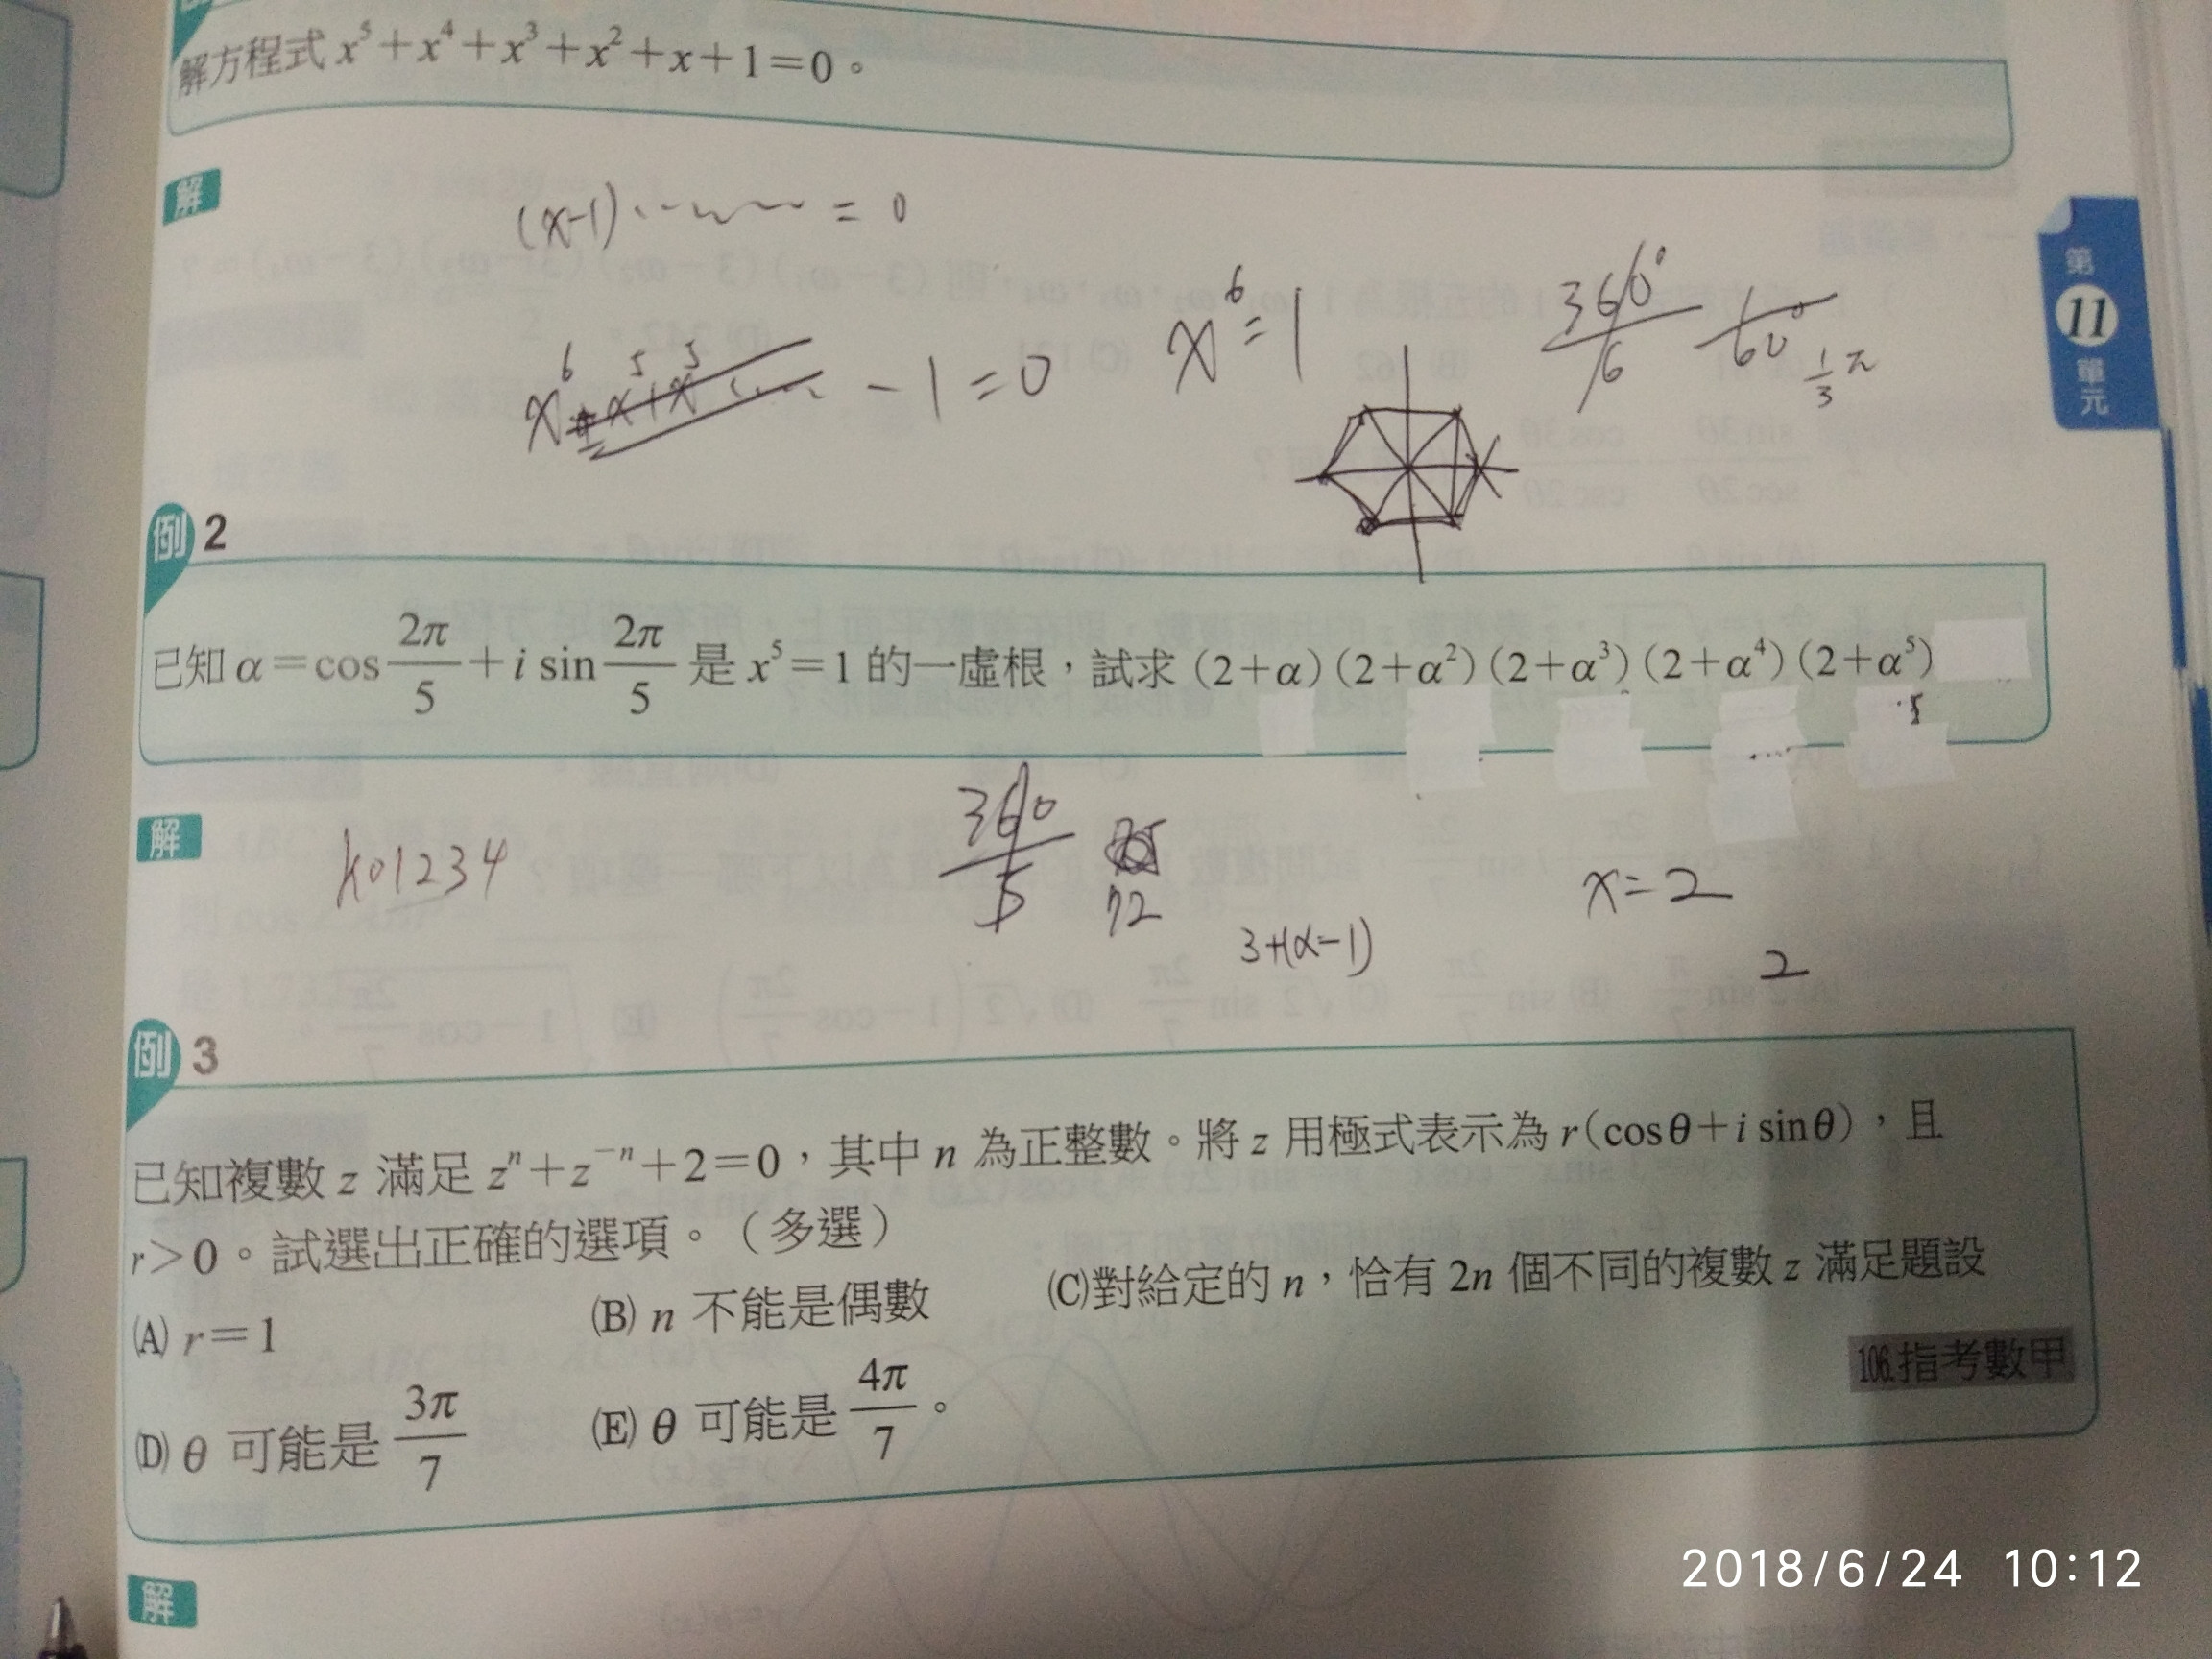 解方程式 x⁵+x⁴+x³+x²+x+1=0。
解
(x-1) = 0
x⁶+x⁵+x⁵ ..... -1=0
x⁶=1
360°/6
60°
1/3 π
第
11
單
元
例 2
已知 α=cos 2π/5 + i sin 2π/5 是 x⁵=1 的一虛根,試求 (2+α)(2+α²)(2+α³)(2+α⁴)(2+α⁵)
5
解
k01234
360/5
72
3+(α-1)
x=2
2
例 3
已知複數 z 滿足 zⁿ+z⁻ⁿ+2=0,其中 n 為正整數。將 z 用極式表示為 r(cosθ+i sinθ),且
r>0。試選出正確的選項。(多選)
(A) r=1 (B) n 不能是偶數 (C)對給定的 n,恰有 2n 個不同的複數 z 滿足題設
(D) θ 可能是 3π/7 (E) θ 可能是 4π/7。
106.指考數甲
解
2018/6/24 10:12